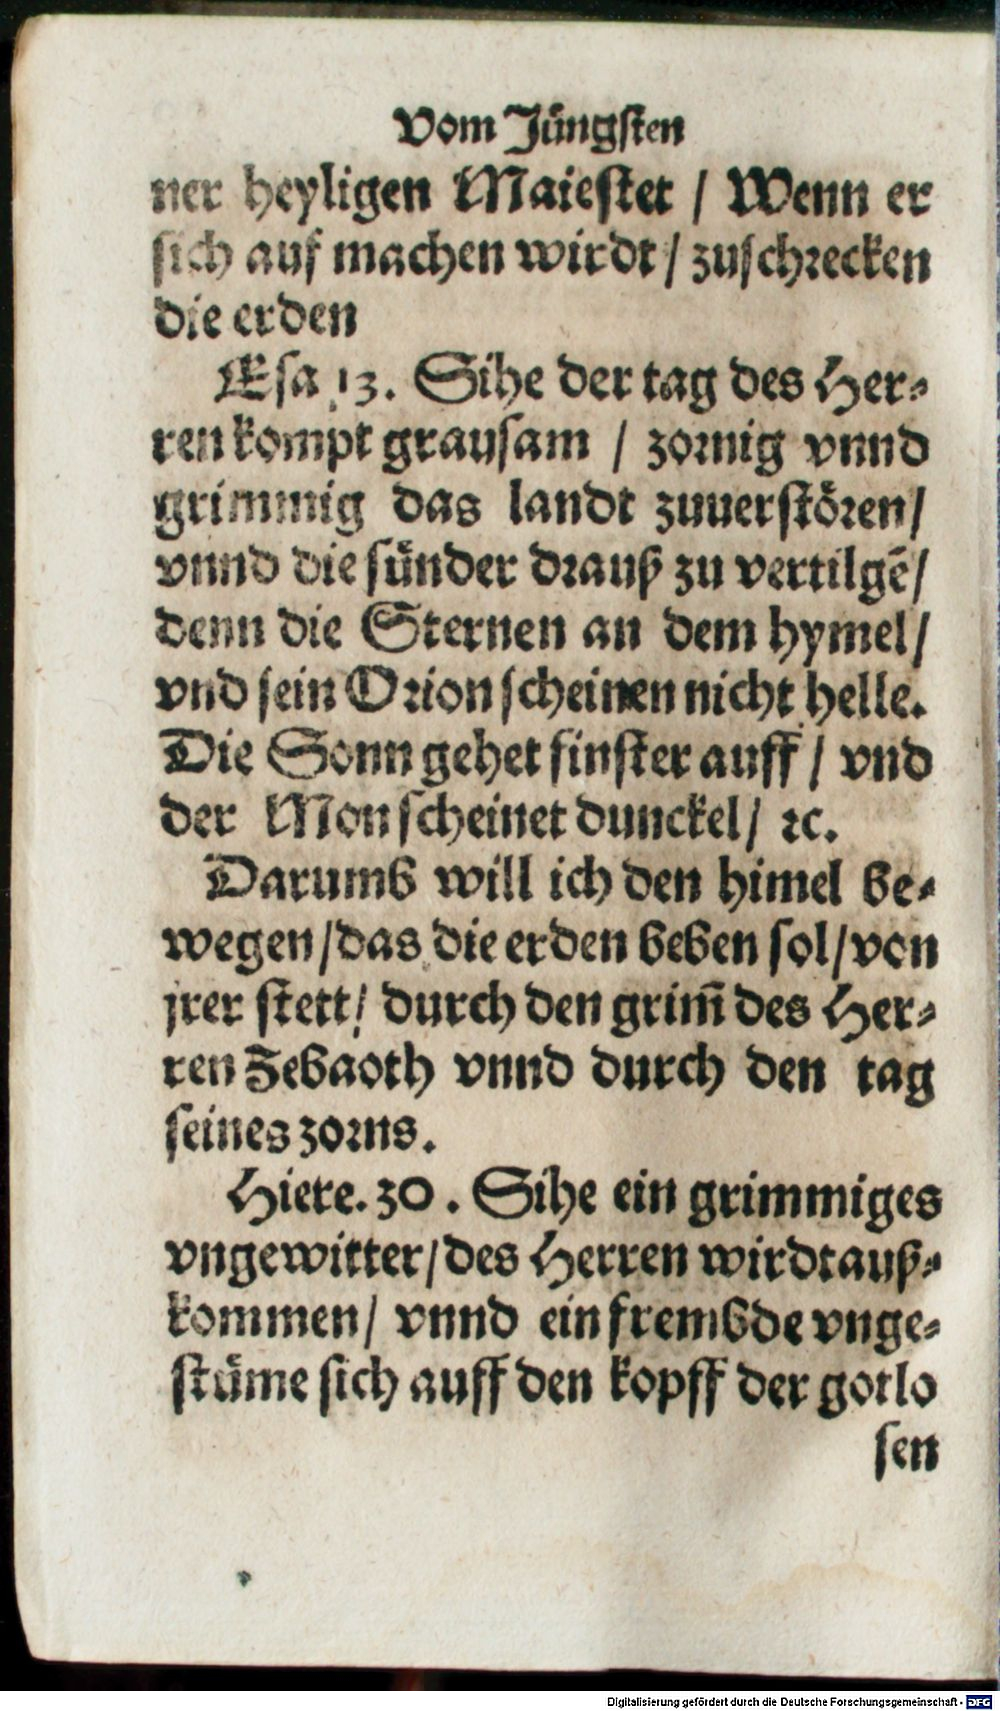 Vom Jüngsten
ner heyligen Maiestet / Wenn er
sich auf machen wirdt / zuschrecken
die erden
Esa 13. Sihe der tag des Her-
ren kompt grausam / zornig vnnd
grimmig das landt zuuerstören /
vnnd die sünder drauß zu vertilgē /
denn die Sternen an dem hymel /
vnd sein Orion scheinen nicht helle.
Die Sonn gehet finster auff / vnd
der Mon scheinet dunckel / ꝛc.
Darumb will ich den himel be-
wegen / das die erden beben sol / von
jrer stett / durch den grim̄ des Her-
ren Zebaoth vnnd durch den tag
seines zorns.
Hiere. 30. Sihe ein grimmiges
vngewitter / des Herren wirdt auß-
kommen / vnnd ein frembde vnge-
stüme sich auff den kopff der gotlo
sen
Digitalisierung gefördert durch die Deutsche Forschungsgemeinschaft - DFG